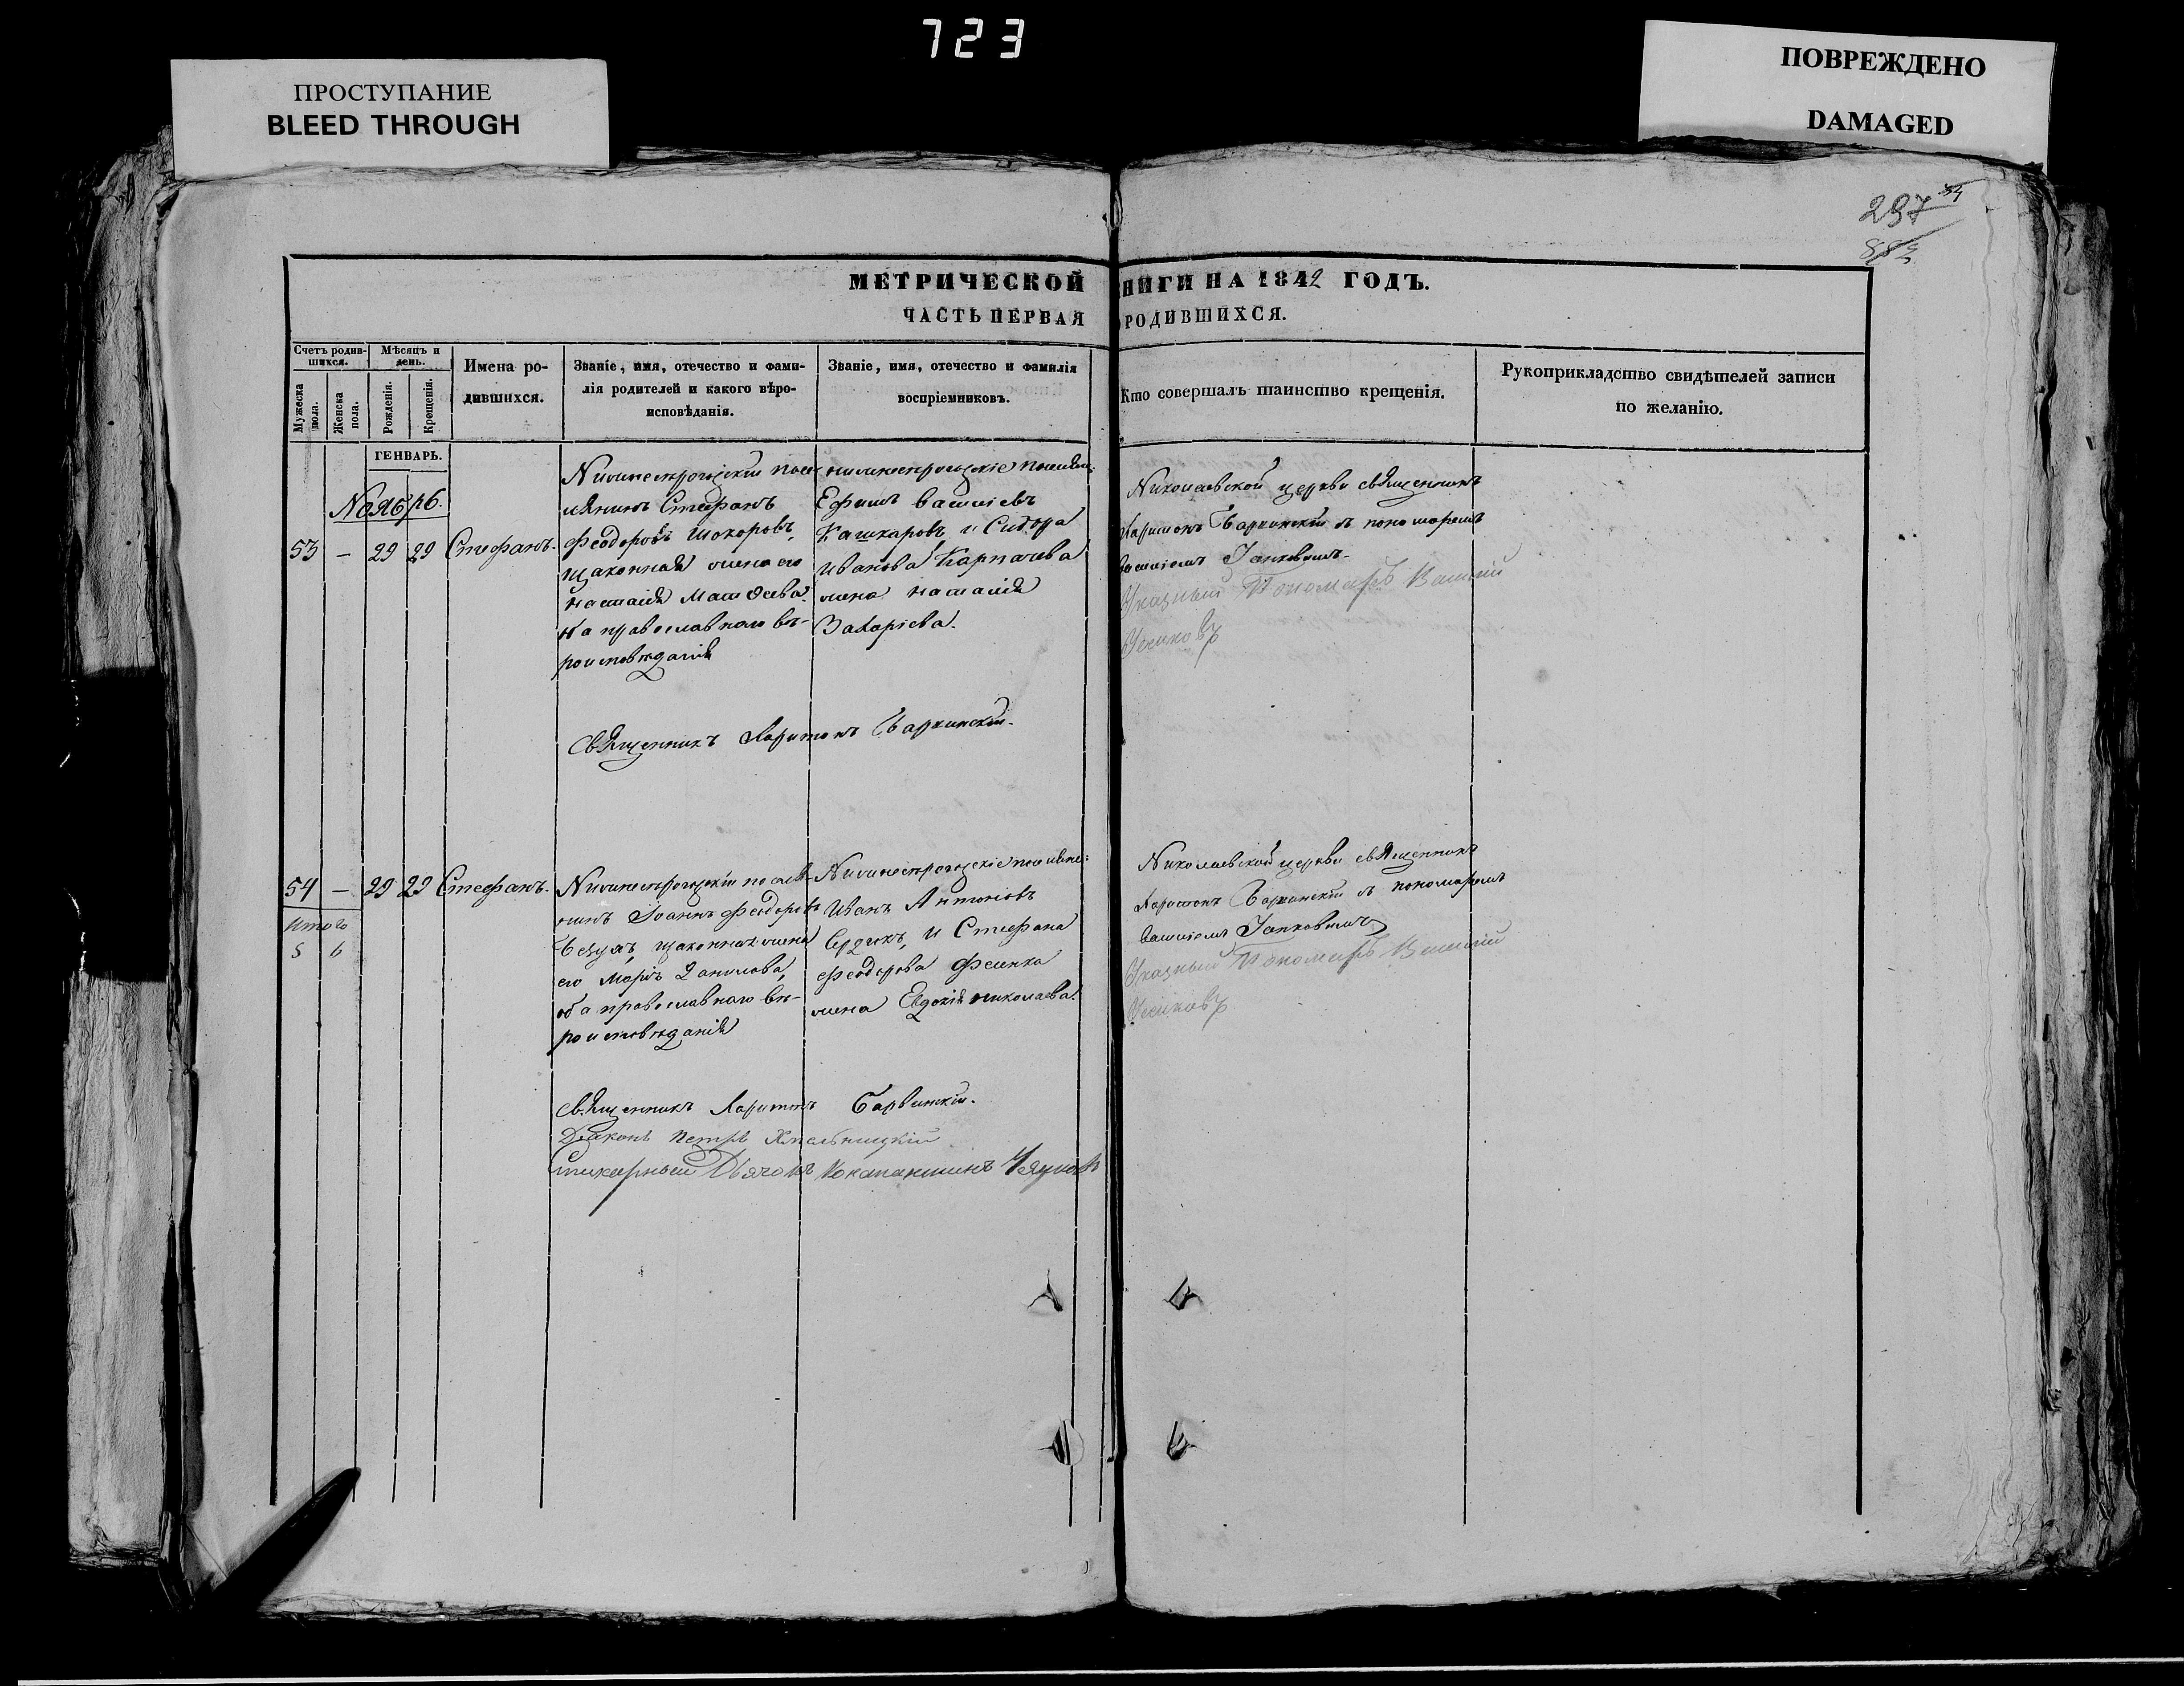 723
ПРОСТУПАНИЕ
BLEED THROUGH
ПОВРЕЖДЕНО
DAMAGED
297
МЕТРИЧЕСКОЙ НИГИ НА 1842 ГОДЪ.
ЧАСТЬ ПЕРВАЯ РОДИВШИХСЯ.
Счетъ родив-
шихся.
Мужеска
пола.
Женска
пола.
Мѣсяцъ и
день.
Рожденія.
Крещенія.
Имена ро-
дившихся.
Званіе, имя, отечество и фами-
лія родителей и какого вѣро-
исповѣданія.
Званіе, имя, отечество и фамилія
воспріемниковъ.
Кто совершалъ таинство крещенія.
Рукоприкладство свидѣтелей записи
по желанію.
ГЕНВАРЬ.
Ноябрь.
53 — 29 29 Стефанъ.
Нижнесѣрогозскій посе-
лянинъ Стефанъ
Феодоровъ
законная жена его
Наталія
оба православнаго вѣ-
роисповѣданія
нижнесѣрогозскіе поселяне:
Ефимъ Василіевъ
Кашкаровъ, и Сидора
Иванова Карпачева
жена Наталія
Захаріева.
Николаевской церкви священникъ
Харитонъ Барвинскій съ пономаремъ
Василіемъ
Указный Пономарь Василій
Священникъ Харитонъ Барвинскій.
54 — 29 29 Стефанъ.
Итого
5 6
Нижнесѣрогозскій поселя-
нинъ Іоаннъ Феодоровъ
законная жена
его Марія Данилова,
оба православнаго вѣ-
роисповѣданія
Нижнесѣрогозскіе поселяне:
Иванъ Антоновъ
Сердюкъ, и Стефана
Феодорова
жена Евдокія Николаева.
Николаевской церкви священникъ
Харитонъ Барвинскій съ пономаремъ
Василіемъ
Указный Пономарь Василій
Священникъ Харитонъ Барвинскій.
Діаконъ Петръ Хмельницкій
Стихарный Дьячокъ